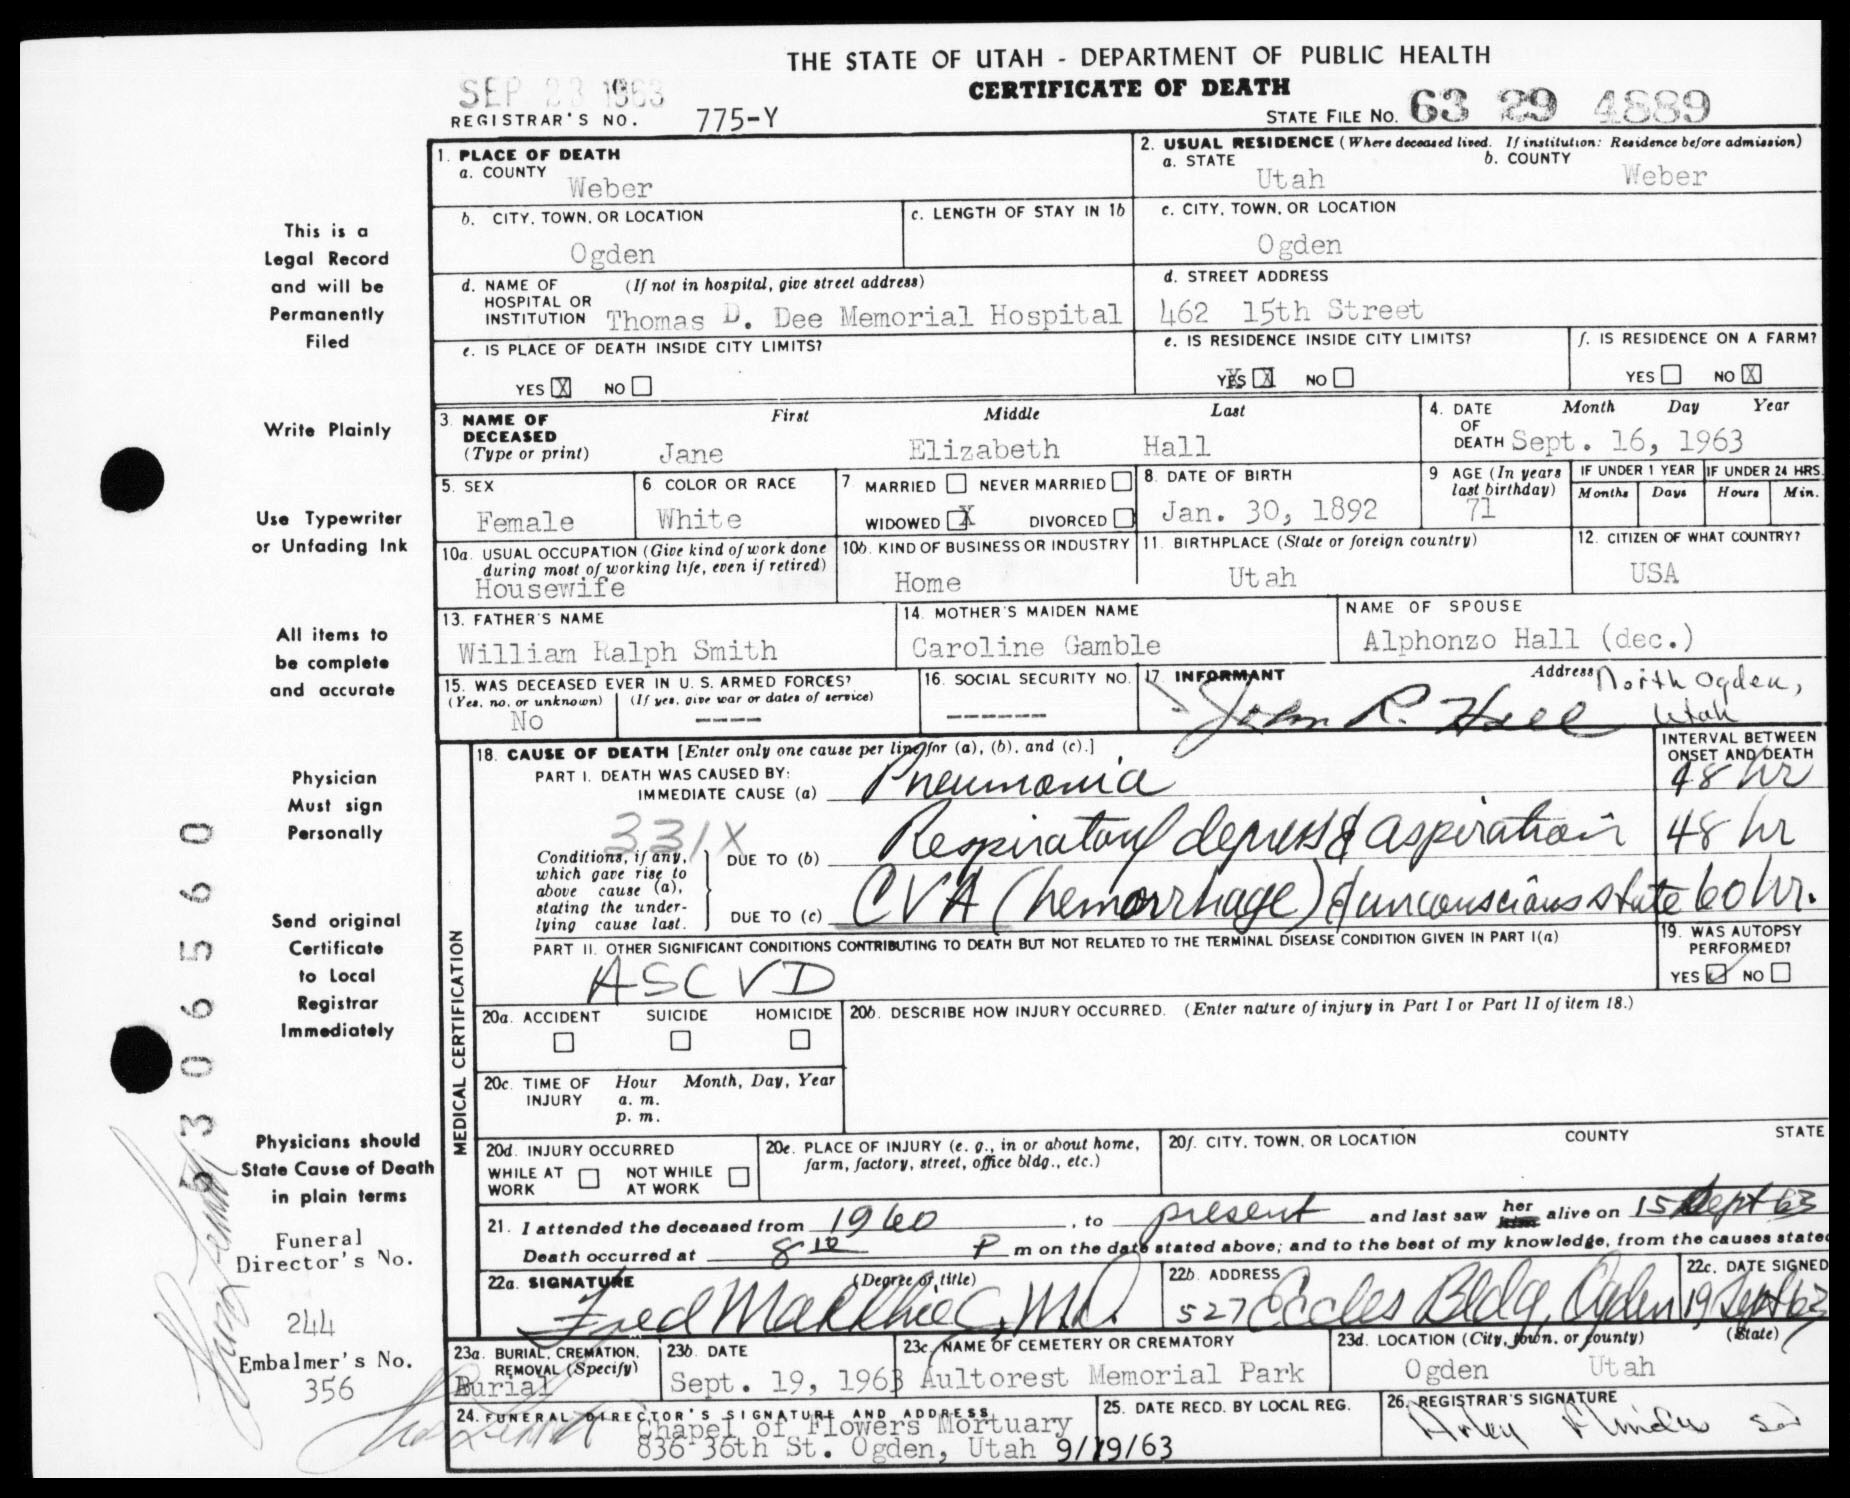 THE STATE OF UTAH - DEPARTMENT OF PUBLIC HEALTH
CERTIFICATE OF DEATH
SEP 23 1963
REGISTRAR'S NO. 775-Y
STATE FILE NO. 63 29 4889
1. PLACE OF DEATH
a. COUNTY
Weber
2. USUAL RESIDENCE (Where deceased lived. If institution: Residence before admission)
a. STATE
Utah
b. COUNTY
Weber
b. CITY, TOWN, OR LOCATION
Ogden
c. LENGTH OF STAY IN 1b
c. CITY, TOWN, OR LOCATION
Ogden
d. NAME OF HOSPITAL OR INSTITUTION
(If not in hospital, give street address)
Thomas D. Dee Memorial Hospital
d. STREET ADDRESS
462 15th Street
e. IS PLACE OF DEATH INSIDE CITY LIMITS?
YES X NO
e. IS RESIDENCE INSIDE CITY LIMITS?
YES X NO
f. IS RESIDENCE ON A FARM?
YES NO X
3. NAME OF DECEASED (Type or print)
First Middle Last
Jane Elizabeth Hall
4. DATE OF DEATH
Month Day Year
Sept. 16, 1963
5. SEX
Female
6. COLOR OR RACE
White
7. MARRIED NEVER MARRIED
WIDOWED X DIVORCED
8. DATE OF BIRTH
Jan. 30, 1892
9 AGE (In years last birthday)
71
IF UNDER 1 YEAR
Months Days
IF UNDER 24 HRS.
Hours Min.
10a. USUAL OCCUPATION (Give kind of work done during most of working life, even if retired)
Housewife
10b. KIND OF BUSINESS OR INDUSTRY
Home
11. BIRTHPLACE (State or foreign country)
Utah
12. CITIZEN OF WHAT COUNTRY?
USA
13. FATHER'S NAME
William Ralph Smith
14. MOTHER'S MAIDEN NAME
Caroline Gamble
NAME OF SPOUSE
Alphonzo Hall (dec.)
15. WAS DECEASED EVER IN U. S. ARMED FORCES?
(Yes, no, or unknown) (If yes, give war or dates of service)
No ----
16. SOCIAL SECURITY NO.
------
17. INFORMANT
John R. Hall
Address North Ogden,
Utah
MEDICAL CERTIFICATION
18. CAUSE OF DEATH [Enter only one cause per line for (a), (b), and (c).]
INTERVAL BETWEEN ONSET AND DEATH
PART I. DEATH WAS CAUSED BY:
IMMEDIATE CAUSE (a) Pneumonia 48 hr
331X
Conditions, if any, which gave rise to above cause (a), stating the underlying cause last.
DUE TO (b) Respiratory depress & aspiration 48 hr
DUE TO (c) CVA (hemorrhage) & unconscious state 60 hr.
PART II. OTHER SIGNIFICANT CONDITIONS CONTRIBUTING TO DEATH BUT NOT RELATED TO THE TERMINAL DISEASE CONDITION GIVEN IN PART I(a)
ASCVD
19. WAS AUTOPSY PERFORMED?
YES ✓ NO
20a. ACCIDENT SUICIDE HOMICIDE
20b. DESCRIBE HOW INJURY OCCURRED. (Enter nature of injury in Part I or Part II of item 18.)
20c. TIME OF INJURY
Hour Month, Day, Year
a. m.
p. m.
20d. INJURY OCCURRED
WHILE AT WORK NOT WHILE AT WORK
20e. PLACE OF INJURY (e. g., in or about home, farm, factory, street, office bldg., etc.)
20f. CITY, TOWN, OR LOCATION COUNTY STATE
21. I attended the deceased from 1960, to present and last saw her him alive on 15 Sept 63
Death occurred at 8 10 P m on the date stated above; and to the best of my knowledge, from the causes stated
22a. SIGNATURE (Degree or title)
M.D.
22b. ADDRESS
527 Eccles Bldg, Ogden
22c. DATE SIGNED
19 Sept 63
23a. BURIAL, CREMATION, REMOVAL (Specify)
Burial
23b. DATE
Sept. 19, 1963
23c. NAME OF CEMETERY OR CREMATORY
Aultorest Memorial Park
23d. LOCATION (City, town, or county) (State)
Ogden Utah
24. FUNERAL DIRECTOR'S SIGNATURE AND ADDRESS
Chapel of Flowers Mortuary
836-36th St. Ogden, Utah
25. DATE RECD. BY LOCAL REG.
9/19/63
26. REGISTRAR'S SIGNATURE
This is a
Legal Record
and will be
Permanently
Filed
Write Plainly
Use Typewriter
or Unfading Ink
All items to
be complete
and accurate
Physician
Must sign
Personally
Send original
Certificate
to Local
Registrar
Immediately
Physicians should
State Cause of Death
in plain terms
Funeral
Director's No.
244
Embalmer's No.
356